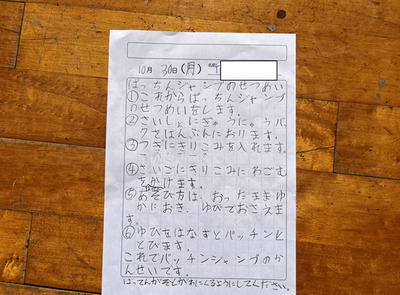 10月 30日(月)
ぱっちんジャンプのせつめい
①これからぱっちんジャンプ
のせつめいをします。
②さいしょにぎゅうにゅうパッ
クをはんぶんにおります。
③つぎにきりこみを入れます。
④さいごにきりこみにわごむ
をかけます。
⑤あそび方は、おったままゆ
かにおき、ゆびでおさえま
す。
⑥ゆびをはなすとパッチンと
とびます。
これでパッチンジャンプのか
んせいです。
はってんがそとがわにくるようにしてください。